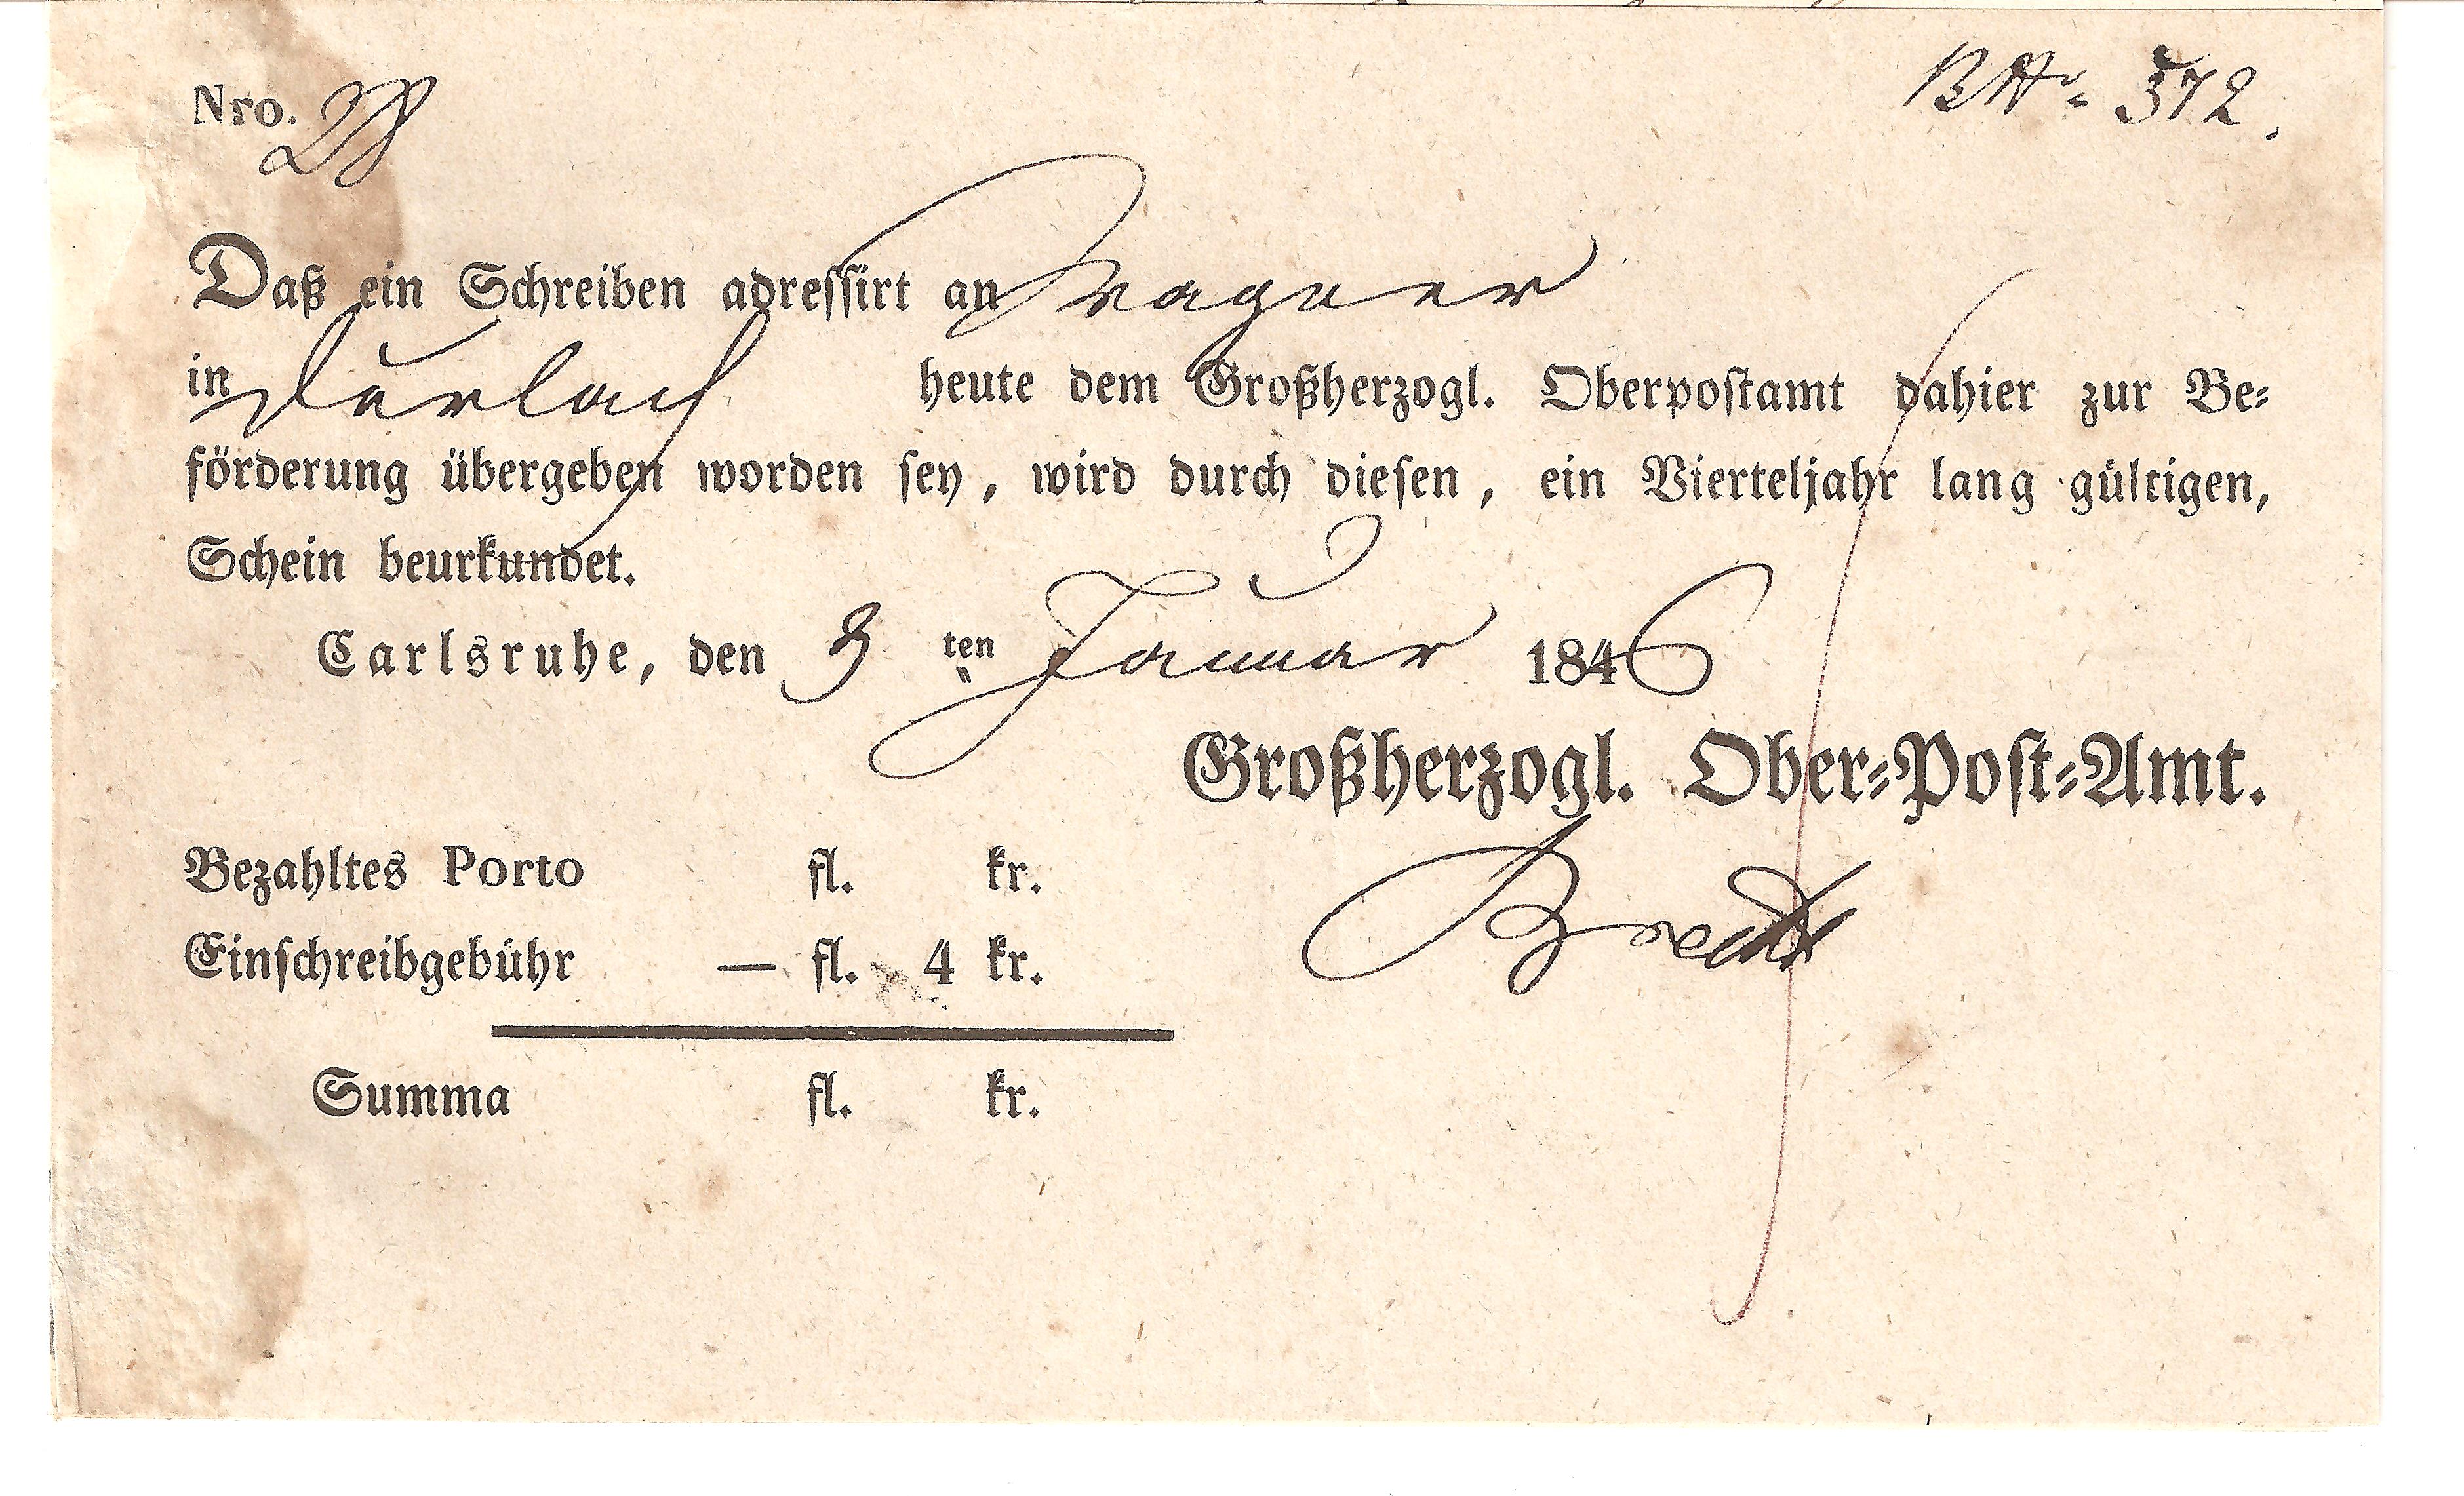 Nro. 28
372.
Daß ein Schreiben adressirt an Wagner
in Durlach heute dem Großherzogl. Oberpostamt dahier zur Be=
förderung übergeben worden sey, wird durch diesen, ein Vierteljahr lang gültigen,
Schein beurkundet.
Carlsruhe, den 9 ten Januar 1846
Großherzogl. Ober=Post=Amt.
Bezahltes Porto fl. kr.
Einschreibgebühr — fl. 4 kr.
Summa fl. kr.